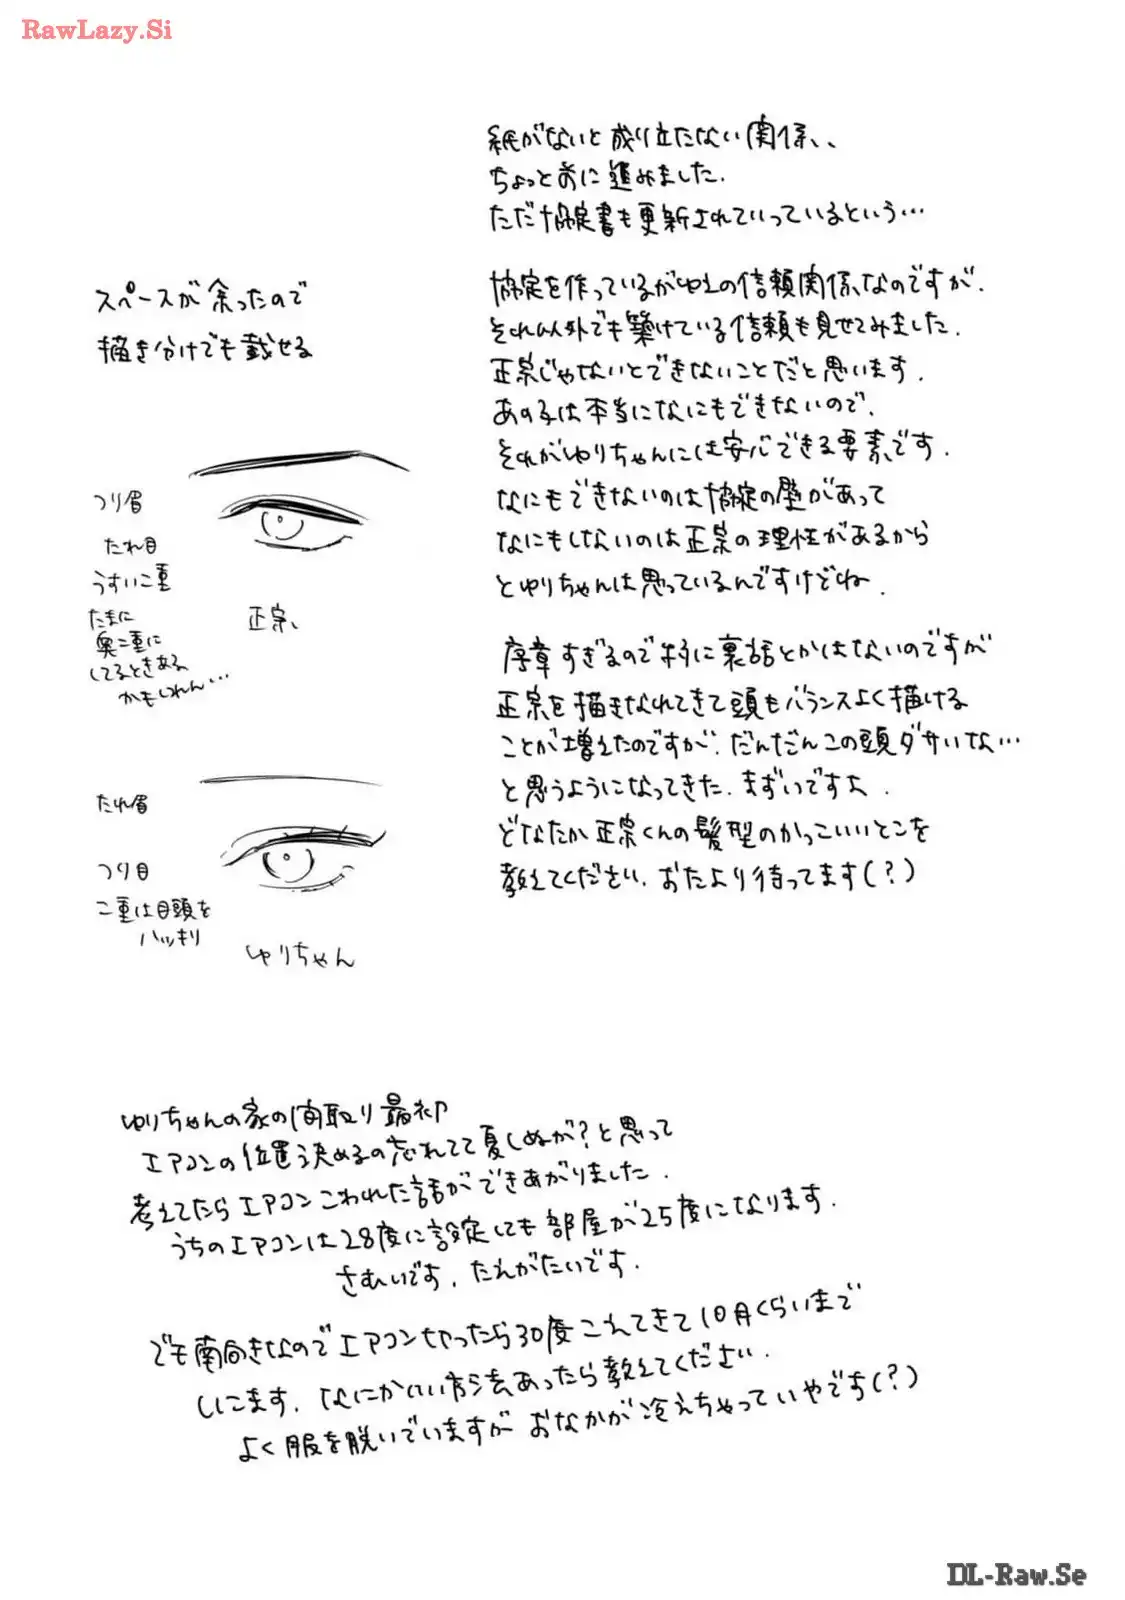 RawLazy.Si
紙がないと成り立たない関係、、
ちょっと前に進みました.
ただ協定書も更新されていっているという…
協定を作っているが故の信頼関係なのですが.
それ以外でも築けている信頼も見せてみました.
正宗じゃないとできないことだと思います.
あの子は本当になにもできないので.
それがゆりちゃんには安心できる要素です.
なにもできないのは協定の壁があって
なにもしないのは正宗の理性があるから
とゆりちゃんは思っているんですけどね.
序章すぎるので特に裏話とかはないのですが
正宗を描きなれてきて頭もバランスよく描ける
ことが増えたのですが.だんだんこの頭ダサいな…
と思うようになってきた.まずいですよ.
どなたか正宗くんの髪型のかっこいいとこを
教えてください.おたより待ってます(?)
スペースが余ったので
描き分けでも載せる
つり眉
たれ目
うすい二重
たまに
奥二重に
してるときある
かもしれん…
正宗、
たれ眉
つり目
二重は目頭を
ハッキリ
ゆりちゃん
ゆりちゃんの家の間取り最初
エアコンの位置決めるの忘れてて夏しぬが?と思って
考えてたらエアコンこわれた話ができあがりました.
うちのエアコンは28度に設定しても部屋が25度になります.
さむいです.たえがたいです.
でも南向きなのでエアコン切ったら30度こえてきて10月くらいまで
しにます.なにかいい方法あったら教えてください.
よく服を脱いでいますがおなかが冷えちゃっていやです(?)
DL-Raw.Se